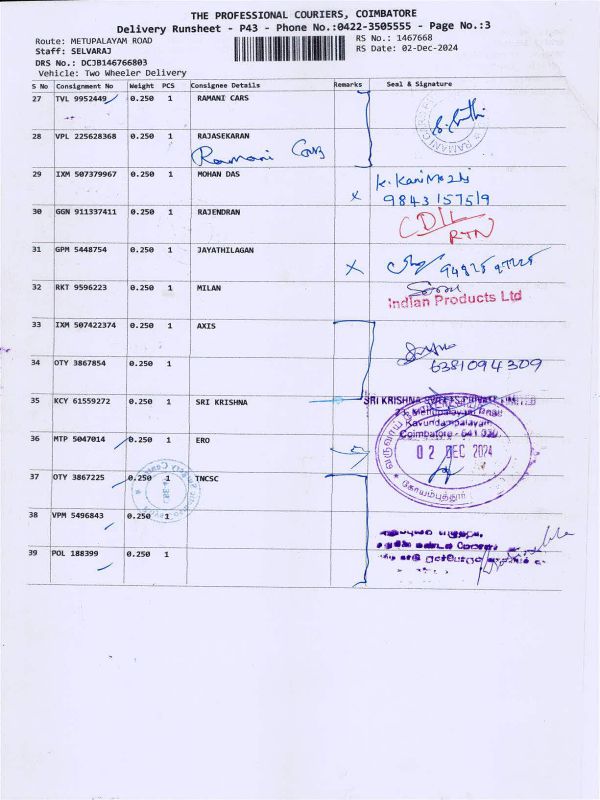 THE PROFESSIONAL COURIERS, COIMBATORE
Delivery Runsheet - P43 - Phone No.:0422-3505555 - Page No.:3
Route: METUPALAYAM ROAD RS No.: 1467668
Staff: SELVARAJ RS Date: 02-Dec-2024
DRS No.: DCJB146766803
Vehicle: Two Wheeler Delivery
S No Consignment No Weight PCS Consignee Details Remarks Seal & Signature
27 TVL 9952449 0.250 1 RAMANI CARS
28 VPL 225628368 0.250 1 RAJASEKARAN
Ramani Cars
29 IXM 507379967 0.250 1 MOHAN DAS
9843157519
30 GGN 911337411 0.250 1 RAJENDRAN
CDIL
RTN
31 GPM 5448754 0.250 1 JAYATHILAGAN
32 RKT 9596223 0.250 1 MILAN
Indian Products Ltd
33 IXM 507422374 0.250 1 AXIS
34 OTY 3867854 0.250 1
6381094309
35 KCY 61559272 0.250 1 SRI KRISHNA
SRI KRISHNA SWEETS PRIVATE LIMITED
Kavundampalayam
Coimbatore - 641 030
36 MTP 5047014 0.250 1 ERO
02 DEC 2024
கோயம்புத்தூர்
37 OTY 3867225 0.250 1 TNCSC
38 VPM 5496843 0.250 1
39 POL 188399 0.250 1